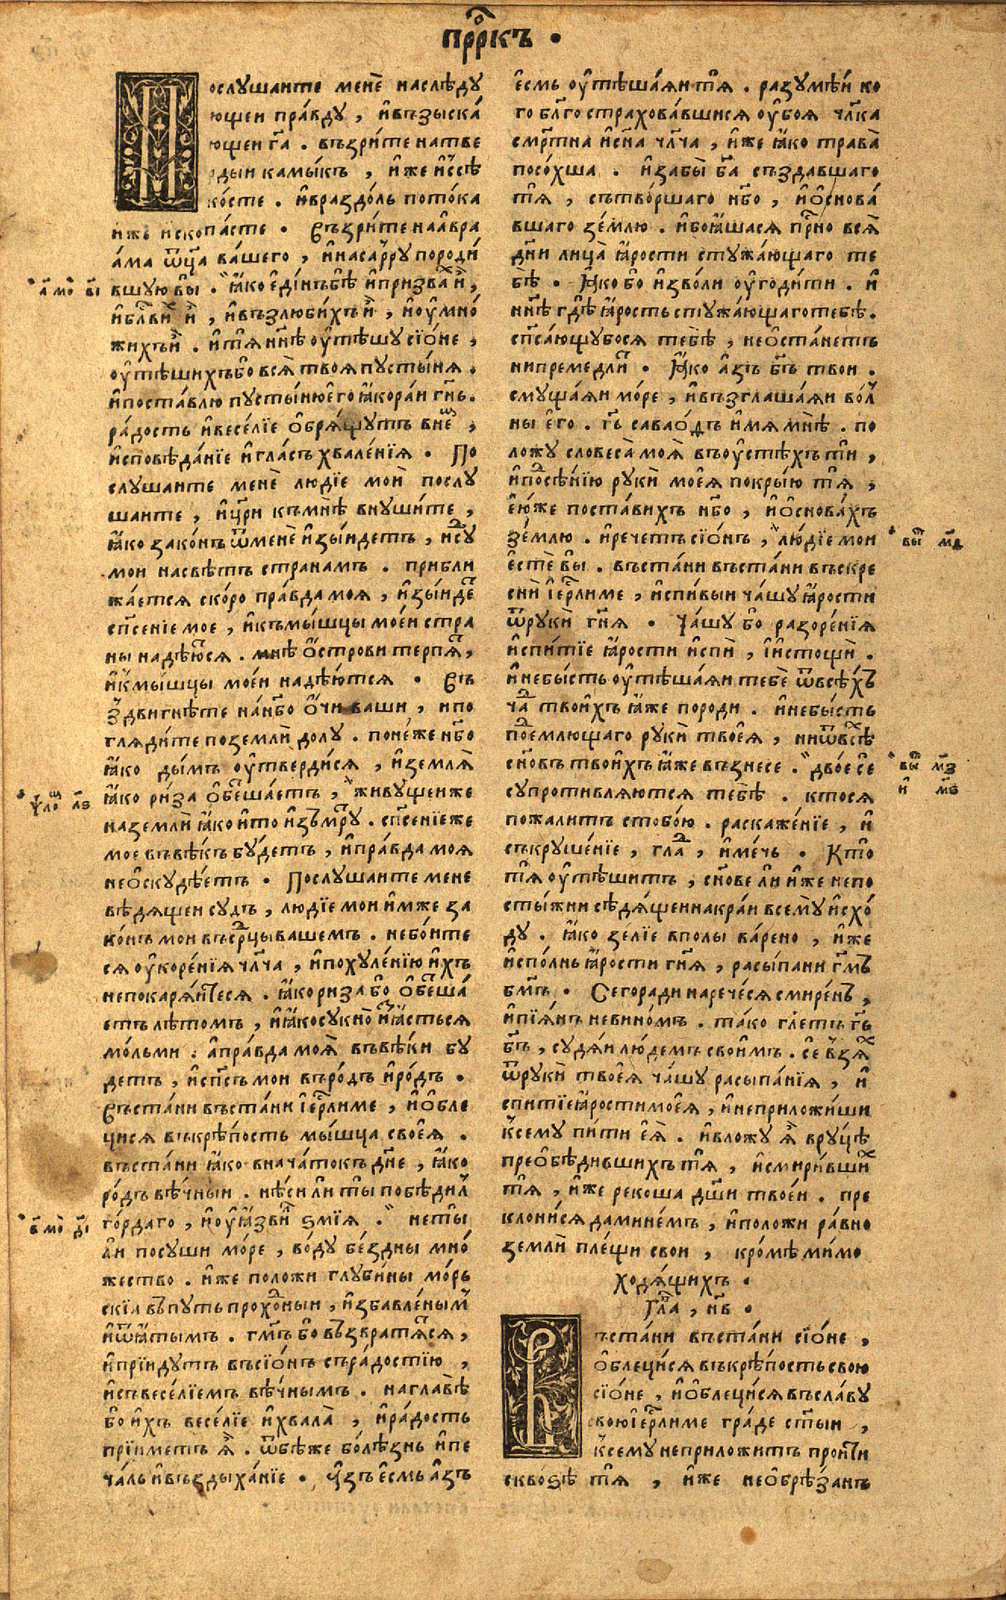 прⷪ҇ркъ ·
Послушаите менѐ наслѣду
ющеи пра́вду , и҆взыска́
ющеи гⷭ҇а . възри́те натве
рдыи ка́мыкъ , и҆же и҆ссѣ
ко́сте . и҆враздо́лъ пото́ка
иже ископа́сте · Възри́те наавра
а́ма ѿц҃а ва́шего , и҆наса́рру породи́
вшую вы̀ . ꙗ҆ко е҆ди́нъ бѣ̀ и҆призва́хъ и҆̀ ,
и҆блⷭ҇ви́хъ и҆̀ , и҆възлюби́хъ и҆̀ , и҆оу҆мно́
жихъ и҆̀ . и҆тѧ̀ нн҃ѣ оу҆тѣшу сїо́не ,
оу҆тѣшихъ бо всѧ̀ твоѧ̀ пусты́нѧ .
и҆поста́влю пусты́ню е҆го̀ ꙗ҆ко ра́и гн҃ь .
ра́дость и҆весе́лїе ѻ҆брѧ́щутъ вне́мъ ,
и҆сповѣ́данїе и҆гла́съ хвале́нїѧ . По
слушаите менѐ лю́дїе моѝ послу
шаите , и҆цр҃и къмнѣ̀ внуши́те ,
ꙗ҆ко зако́нъ ѿменѐ и҆зы́идетъ , и҆сꙋⷣ
мои насвѣ́тъ страна́мъ . прибли
жа́етсѧ ско́ро пра́вда моѧ̀ , и҆зы́идеⷮ
спⷭ҇е́нїе мое , и҆къмы́шцы мое́и стра
ны наде́ютсѧ . мнѣ̀ ѻ҆́строви те́рпѧⷮ ,
и҆къмы́шцы мое́и надѣ́ютсѧ · Въ
здви́гнѣте нан҃бо ѻ҆́чи ва́ши , и҆по
глѧди́те по землѝ до́лу . поне́же нб҃о
ꙗ҆ко ды́мъ оу҆тверди́сѧ , и҆землѧ̀
ꙗ҆ко ри́за ѻ҆бетша́етъ , живу́щеи же
на землѝ ꙗ҆ко и҆то̀ и҆зъмру . спⷭ҇е́нїе же
мое въвѣ́къ бу́детъ , и҆пра́вда моѧ̀
неѻ҆скудѣ́етъ · Послу́шаите мене
вѣ́дѧщеи су́дъ , лю́дїе мои и҆́мже за
ко́нъ мои въсрⷣцы ва́шемъ . небо́ите
сѧ оу҆коре́нїѧ чл҃ча , и҆похуле́нїю и҆́хъ
непокарѧ́итесѧ . ꙗ҆ко ри́за бо ѻ҆бетша́
етъ лѣ́томъ , и҆ꙗ҆ко сукно̀ и҆з̾ꙗ҆́стьсѧ
мо́льми . а҆пра́вда моѧ̀ въвѣ́ки бу́
детъ , и҆спⷭ҇ъ мои въро́дъ и҆ро́дъ ·
Въста́ни въста́ни і҆ерⷭ҇ли́ме , и҆ѻ҆бле
ци́сѧ въкрѣ́пость мы́шца свое́ѧ .
въста́ни ꙗ҆ко внача́токъ дн҃е , ꙗ҆ко
ро́дъ вѣ́чныи . нѣ́си ли ты̀ побѣди́лъ
го́рдаго , и҆оу҆ꙗ҆зви́лъ ѕмїѧ . не ты́
ли посушѝ мо́ре , во́ду бе́здны мно́
жество . и҆́же положѝ глуби́ны мо́рь
скїѧ въпу́ть прохо́дныи , и҆збавле́нымъ
и҆ѿꙗ҆́тымъ . гмⷭ҇ъ бо възвратѧ́тсѧ ,
и҆прїи́дутъ въсїо́нъ съра́достїю ,
и҆съвесе́лїемъ вѣ́чнымъ . наглавѣ̀
бо и҆́хъ весе́лїе и҆хвала̀ , и҆ра́дость
прїи́метъ ѧ҆̀ . ѿбѣже болѣ́знь и҆пе
ча́ль и҆въздыха́нїе · А҆́зъ е҆́смь а҆́зъ
е҆́смь оу҆тѣша́ѧи тѧ̀ . разумѣ́и ко
го̀ бл҃го страхова́вшисѧ оу҆боѧ̀ чл҃ка
смр҃тна и҆сн҃а чл҃ча , и҆́же ꙗ҆́ко трава̀
посо́хша . и҆забы̀ бг҃а създа́вшаго
тѧ̀ , сътво́ршаго нб҃о , и҆ѻ҆снова́
вшаго зе́млю . и҆боꙗ҆́шасѧ при́сно всѧ̀
дн҃и лица̀ ꙗ҆́рости стужа́ющаго те
бѣ̀ . ꙗ҆ко бо и҆зво́ли оу҆годи́ти . и҆
нн҃ѣ гдѣ̀ ꙗ҆́рость стужа́ющаго тебѣ̀ .
спⷭ҇а́ющубосѧ тебѣ̀ , неѻ҆ста́нетъ
нипреме́длитъ . ꙗ҆ко а҆́зъ бг҃ъ твои .
смуща́ѧи мо́ре , и҆възглаша́ѧи во́л
ны е҆го̀ . гⷭ҇ь савао́ѳъ и҆́мѧ мнѣ̀ . по
ложу̀ словеса̀ моѧ̀ въоу҆стѣ́хъ ти̂ ,
и҆подсѣ́нїю руки̂ мое́ѧ покры́ю тѧ̀ ,
е҆ю́же поста́вихъ нб҃о , и҆ѻ҆снова́хъ
зе́млю . и҆рече́тъ сїо́нъ , лю́дїе мои
е҆стѐ вы . въста́ни въста́ни въскре
сни̂ і҆ерⷭ҇лиме , и҆спи́выи ча́шу ꙗ҆́рости
ѿруки̂ гн҃ѧ · Ча́шу бо разоре́нїѧ
и҆спи́тїе ꙗ҆́рости и҆спи̂ , и҆и҆стощи̂ .
и҆небы́сть оу҆тѣша́ѧи тебѐ ѿвсѣ́хъ
ча́дъ твои́хъ ꙗ҆же породи . и҆небы́сть
подъе́млющаго руки̂ твое́ѧ , ниѿвсѣⷯ
сн҃овъ твои́хъ ꙗ҆́же възнесе . дво́е се
супротивлѧ́ютсѧ тебѣ̀ . кто́сѧ
пожали́тъ стобо́ю . раскаже́нїе , и҆
съкруше́нїе , гла́дъ , и҆ме́чь . Кто̀
тѧ̀ оу҆тѣши́тъ , сн҃ове ли и҆́же непо
сты́жни сѣдѧ́щеи накра́и всему̀ и҆схо́
ду . ꙗ҆ко зе́лїе вполы̀ ва́рено , и҆же
и҆спо́лнь ꙗ҆́рости гн҃ѧ , расы́пани гм҃ъ
бм҃ъ · Сегора́ди нарече́сѧ смире́нъ ,
и҆пїѧ́нъ невино́мъ . та́ко гл҃етъ гⷭ҇ь
бг҃ъ , судѧ́и лю́демъ свои́мъ . се взѧ́хъ
ѿруки̂ твое́ѧ ча́шу расыпа́нїѧ , и҆
спи́тїе ꙗ҆́рости мое́ѧ , и҆неприложи́ши
ксему̀ пи́ти е҆ѧ̀ . и҆вложу̀ ѧ҆̀ вру́цѣ
преѻ҆бѣди́вшихъ тѧ̀ , и҆смири́вшиⷯ
тѧ̀ , и҆́же реко́ша дш҃и твое́и . пре
клони́сѧ дамине́мъ , и҆положи ра́вно
землѝ пле́щи своѝ , кромѣ̀ ми́мо
ходѧ́щихъ ·
Гла́ , н҃в ·
Въста́ни въста́ни сїо́не ,
ѻ҆блеци́сѧ въкрѣ́пость свою
сїо́не , и҆ѻ҆блеци́сѧ въсла́ву
свою і҆ерⷭ҇ли́ме гра́де ст҃ыи ,
ксему неприложи́тъ прои́ти
сквоѕѣ̀ тѧ̀ , и҆же неѻ҆брѣ́занъ
а҆ мо в҃і
ѱало л҃ѕ
в҃ мо д҃і
выⷲ м҃д
выⷲ м҃з
и҆ м҃ѕ